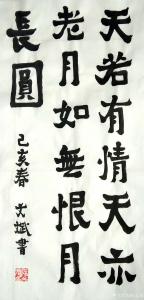 天若有情天亦
老月如無恨月
長圓
己亥春 文斌書